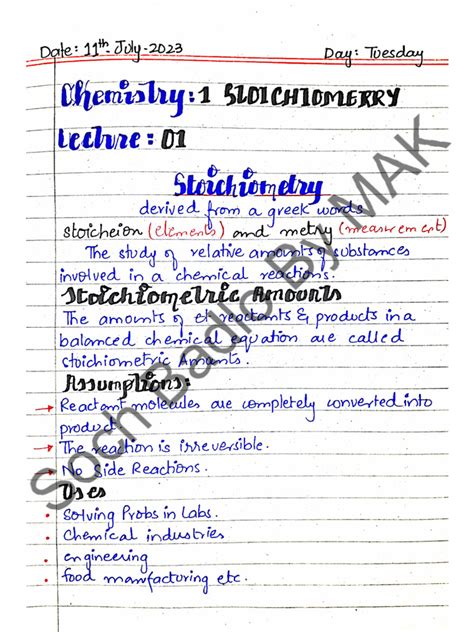 Date: 11th July-2023 Day: Tuesday
Chemistry: 1 STOICHIOMERRY
Lecture: 01
Stoichiometry
derived from a greek words
stoicheion (elements) and metry (measurement)
The study of relative amounts of substances
involved in a chemical reactions.
Stoichiometric Amounts
The amounts of reactants & products in a
balanced chemical equation are called
stoichiometric Amounts.
Assumptions:
→ Reactant molecules are completely converted into
product
→ The reaction is irreversible.
→ No Side Reactions.
Uses
• Solving Probs in Labs.
• Chemical industries
• engineering
• food manfacturing etc.
Soch Badlo By MAK